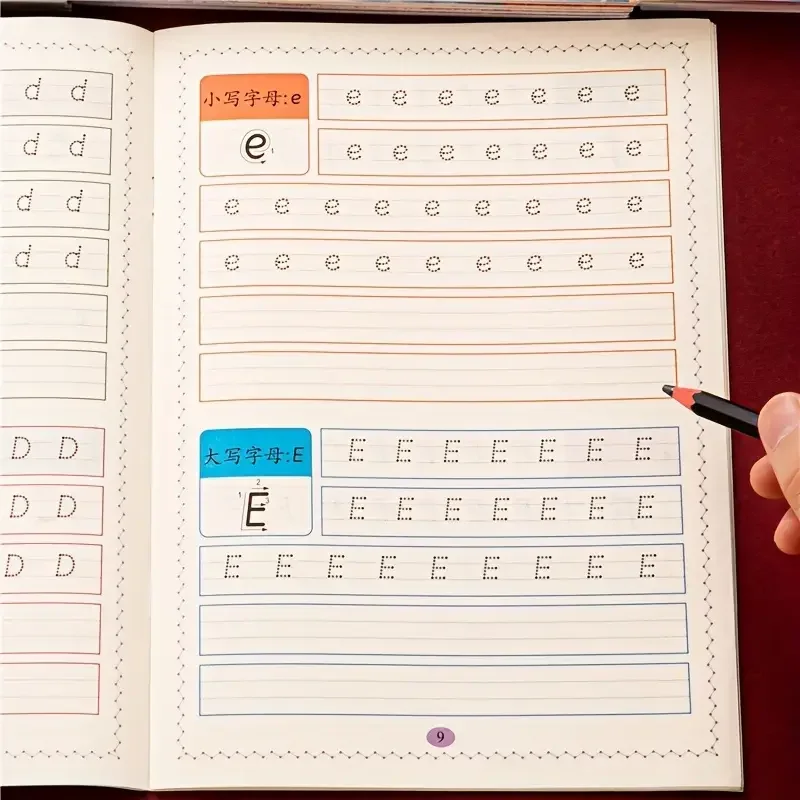 d d
d d
d d
d d
D D
D D
D D
小写字母:e
e
1
e e e e e e e
e e e e e e e
e e e e e e e e e
e e e e e e e e e
大写字母:E
2
1 E 3
E E E E E E E
E E E E E E E
E E E E E E E E E
9